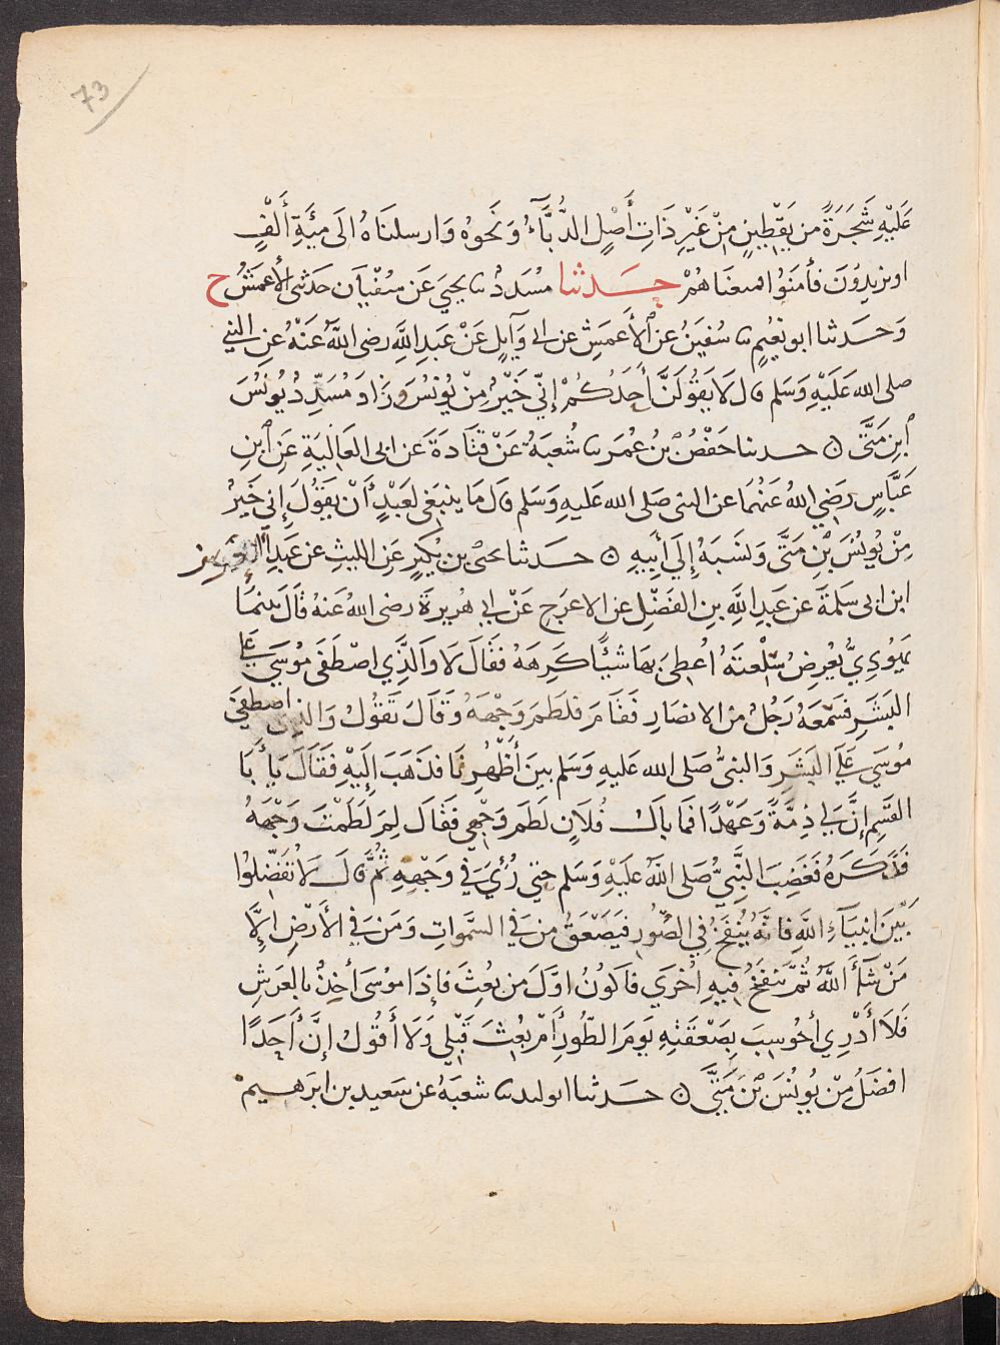 73
عَلَيْهِ شَجَرَةً من يَقْطِينٍ مِنْ غَيْرِ ذَاتِ أَصْلٍ الدُّبَّآءُ وَنَحْوُه وَارسلنَاهُ الَى مِئَةِ أَلْفٍ
او يزيدُوْنَ فأمَنُوا فمتعنَاهُمْ حَدثنا مُسَدَدُ نا يحيَى عَن سُفْيَان حَدثنى الأعمَشُ ح
وَحدَثنا ابو نعُيمٍ نا سُفينُ عن الأَعمَشِ عن ابى وَآيِلٍ عَنْ عَبدِ اللَّهِ رضى اللَّهُ عَنْهُ عَنِ النبي
صلى الله عَلَيْهِ وَسَلم قال لَا يَقُولَنَّ أَحَدُكُمْ إِنّي خَيْرٌ مِنْ يُونُسَ وزَادَ مُسَدِّدُ يُونُسَ
ابنِ مَتَّى ن حدثنا حَفْصُ بْنُ عُمَرَ نا شُعبَةُ عَنْ قتَادَةَ عَن ابى العَالِيَةِ عَنِ ابنِ
عَبَّاسٍ رضَى اللهُ عَنْهُمَا عن النبى صَلى الله عَليهِ وَسَلم قَالَ مَا ينبَغى لعَبْدٍ أَنْ يَقُولَ إِنى خَيرٌ
مِنْ يُونُسَ بْنِ مَتَّى وَنَسَبَهُ إِلَى أَبِيهِ ن حَدَثنا يحيى بن بُكَيرٍ عَنِ الليثِ عن عَبدِ العزيز
ابن ابى سَلمَةَ عن عَبدِ اللَّهِ بنِ الفَضْلِ عن الاعرَجِ عَنْ ابى هُريرةَ رضى الله عَنهُ قَالَ بينمَا
يَهُودِيٌّ يُعْرِضُ سِلْعتَهُ أُعطِىَ بِهَا شيئًا كَرِهَهُ فقَالَ لَا وَالَّذِي اصْطَفَى مُوْسَى عَلى
البَشَرِ فسَمِعَهُ رَجُلٌ من الانصَارِ فَقَامَ فلَطَمَ وَجْهَهُ وَقَالَ تَقُولُ وَالذى اصطفى
مُوسَى عَلَى البَشَرِ وَالنبىُّ صَلى الله عَليهِ وَسَلم بينَ أَظْهُرِنَا فذَهَبَ إِلَيْهِ فقَالَ يَا أَبَا
القَسِمِ إِنَّ لى ذِمَّةً وَعَهْدًا فمَا بالُ فُلَانٍ لَطَمَ وَجْهى فَقَالَ لِمَ لَطَمْتَ وَجْهَهُ
فَذَكَرَهُ فَغَضِبَ النَّبِيُّ صَلى اللَّهُ عَلَيْهِ وَسَلم حتى رُؤيَ في وَجْهِهِ ثُمَّ قالَ لَا تُفَضِّلُوا
بَيْنَ انبيَآءِ اللَّهِ فانَّهُ يُنْفَخُ في الصُّورِ فيَصْعَقُ مَن في السَّموَاتِ وَمَن في الأَرْضِ إِلَّا
مَنْ شَآءَ اللَّهُ ثُمَّ يُنفَخُ فيهِ اُخْرَي فَاكُونُ اوَّلَ مَن بُعِثَ فإِذَا موُسَى أخِذٌ بالعَرشِ
فَلَا أَدْرِي أَحُوسِبَ بِصَعْقَتِهِ يَومَ الطُّورِ أَمْ بُعِثَ قَبْلي وَلَا أَقُولُ إِنَّ أَحَدًا
افضَلُ مِنْ يُونُسَ بْنَ مَتَّى ن حدَثنا ابو الوليد نا شعبَةُ عن سَعيد بن ابرَهيم